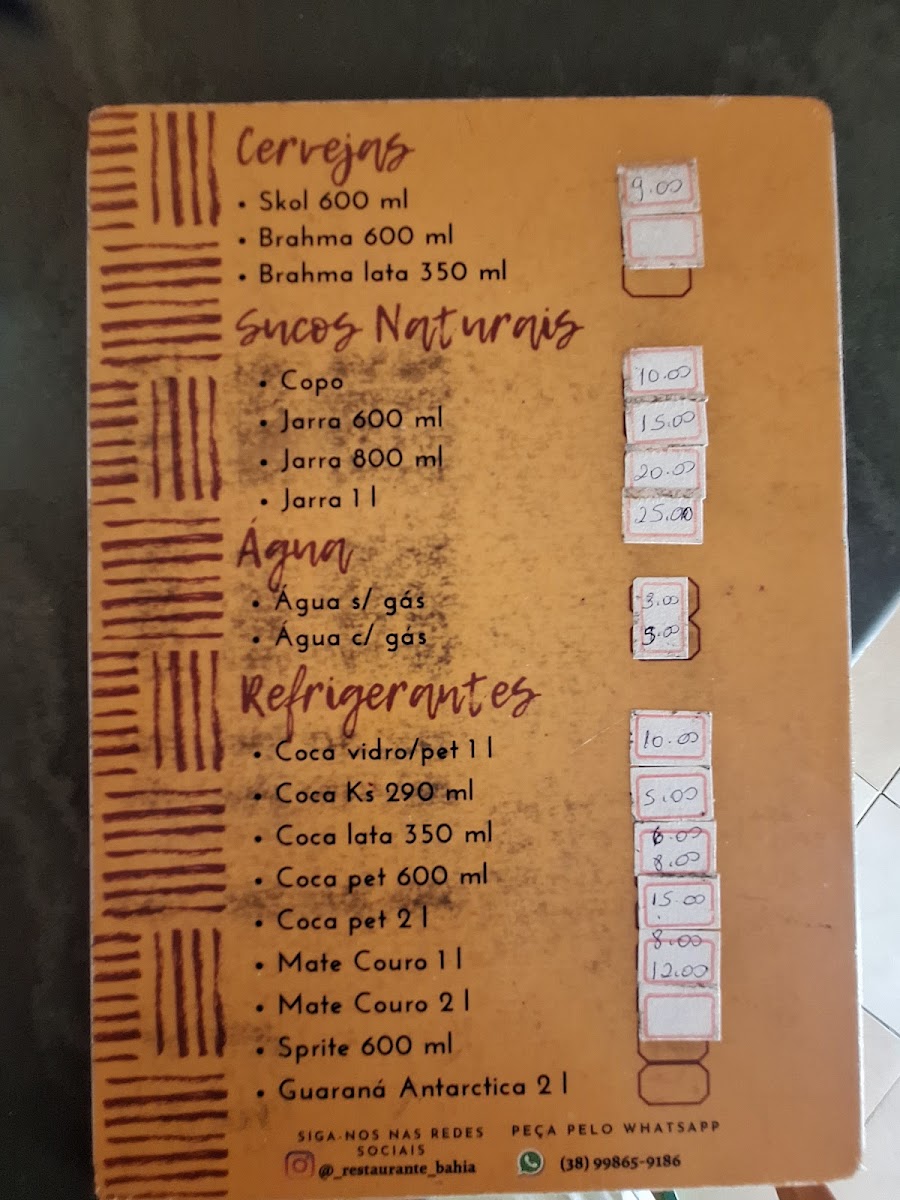 Cervejas
• Skol 600 ml 9.00
• Brahma 600 ml
• Brahma lata 350 ml
Sucos Naturais
• Copo 10.00
• Jarra 600 ml 15.00
• Jarra 800 ml 20.00
• Jarra 1 l 25.00
Água
• Água s/ gás 3.00
• Água c/ gás 5.00
Refrigerantes
• Coca vidro/pet 1 l 10.00
• Coca Ks 290 ml 5.00
• Coca lata 350 ml 6.00
• Coca pet 600 ml 8.00
• Coca pet 2 l 15.00
• Mate Couro 1 l 8.00
• Mate Couro 2 l 12.00
• Sprite 600 ml
• Guaraná Antarctica 2 l
SIGA-NOS NAS REDES SOCIAIS
@_restaurante_bahia
PEÇA PELO WHATSAPP
(38) 99865-9186